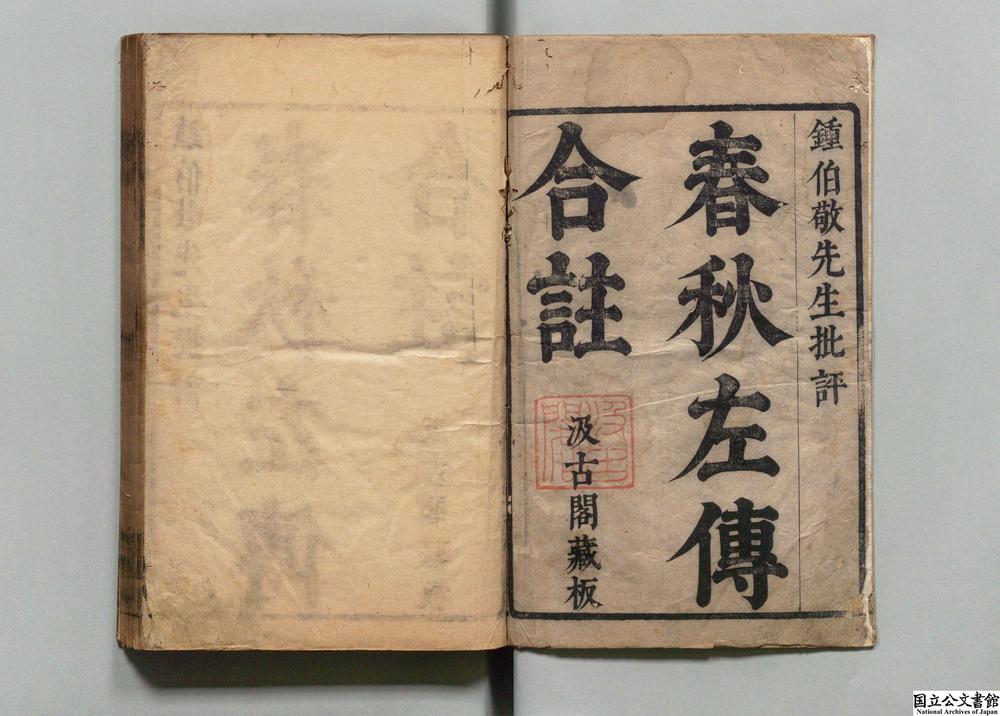 鍾伯敬先生批評
春秋左傳
合註
汲古閣藏板
国立公文書館
National Archives of Japan